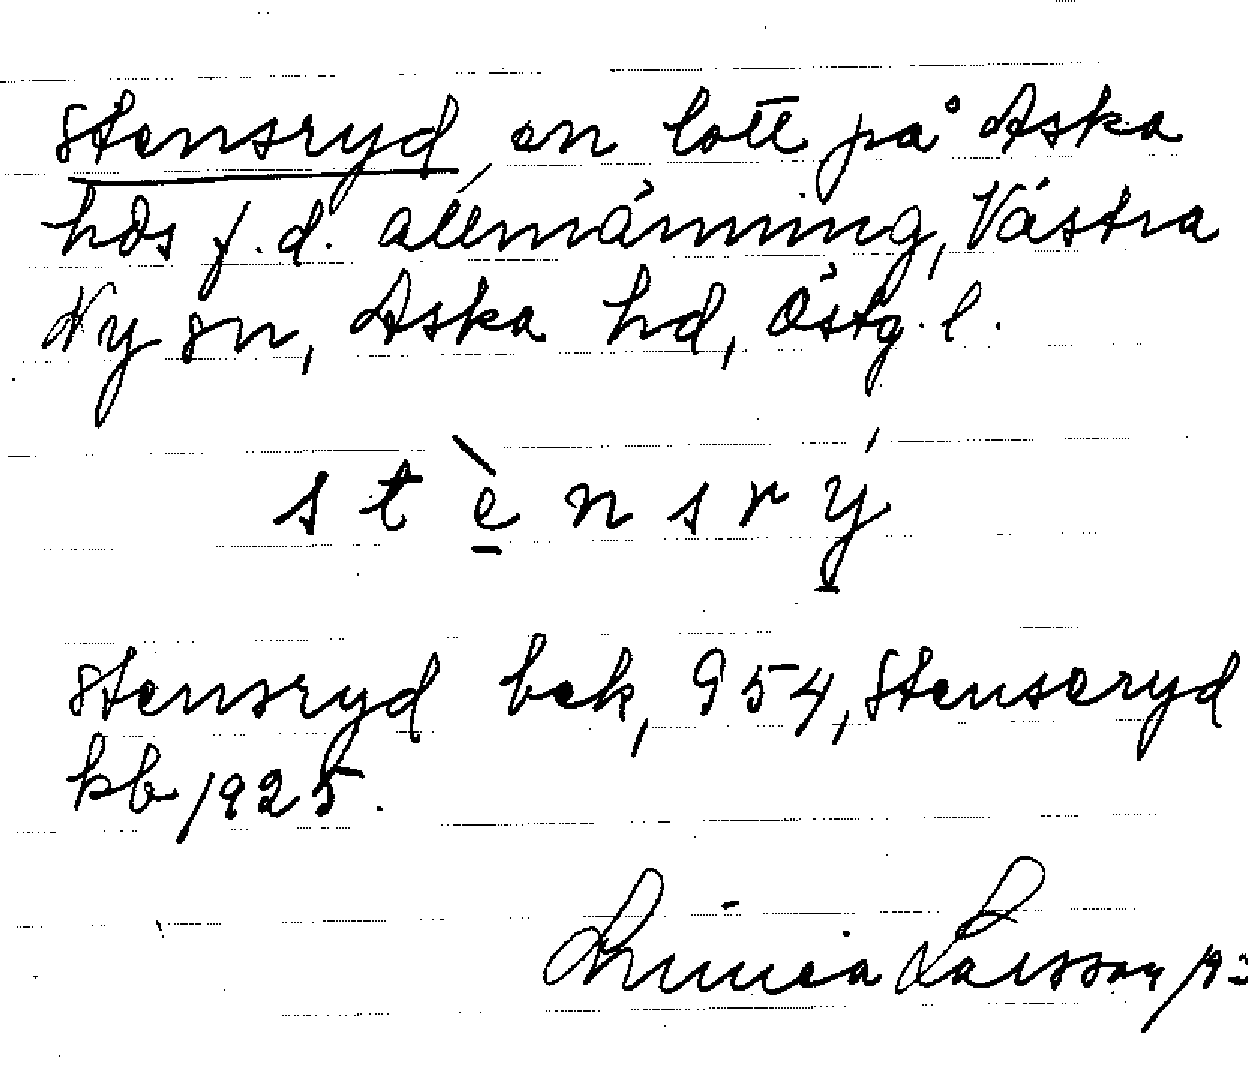 Stensryd, en lott på Aska
hds f.d. allmänning, Västra
Ny sn, Aska hd, Östg. l.
stènsrý
Stensryd bek, 954, Stenseryd
kb 1925.
Linnea Larsson